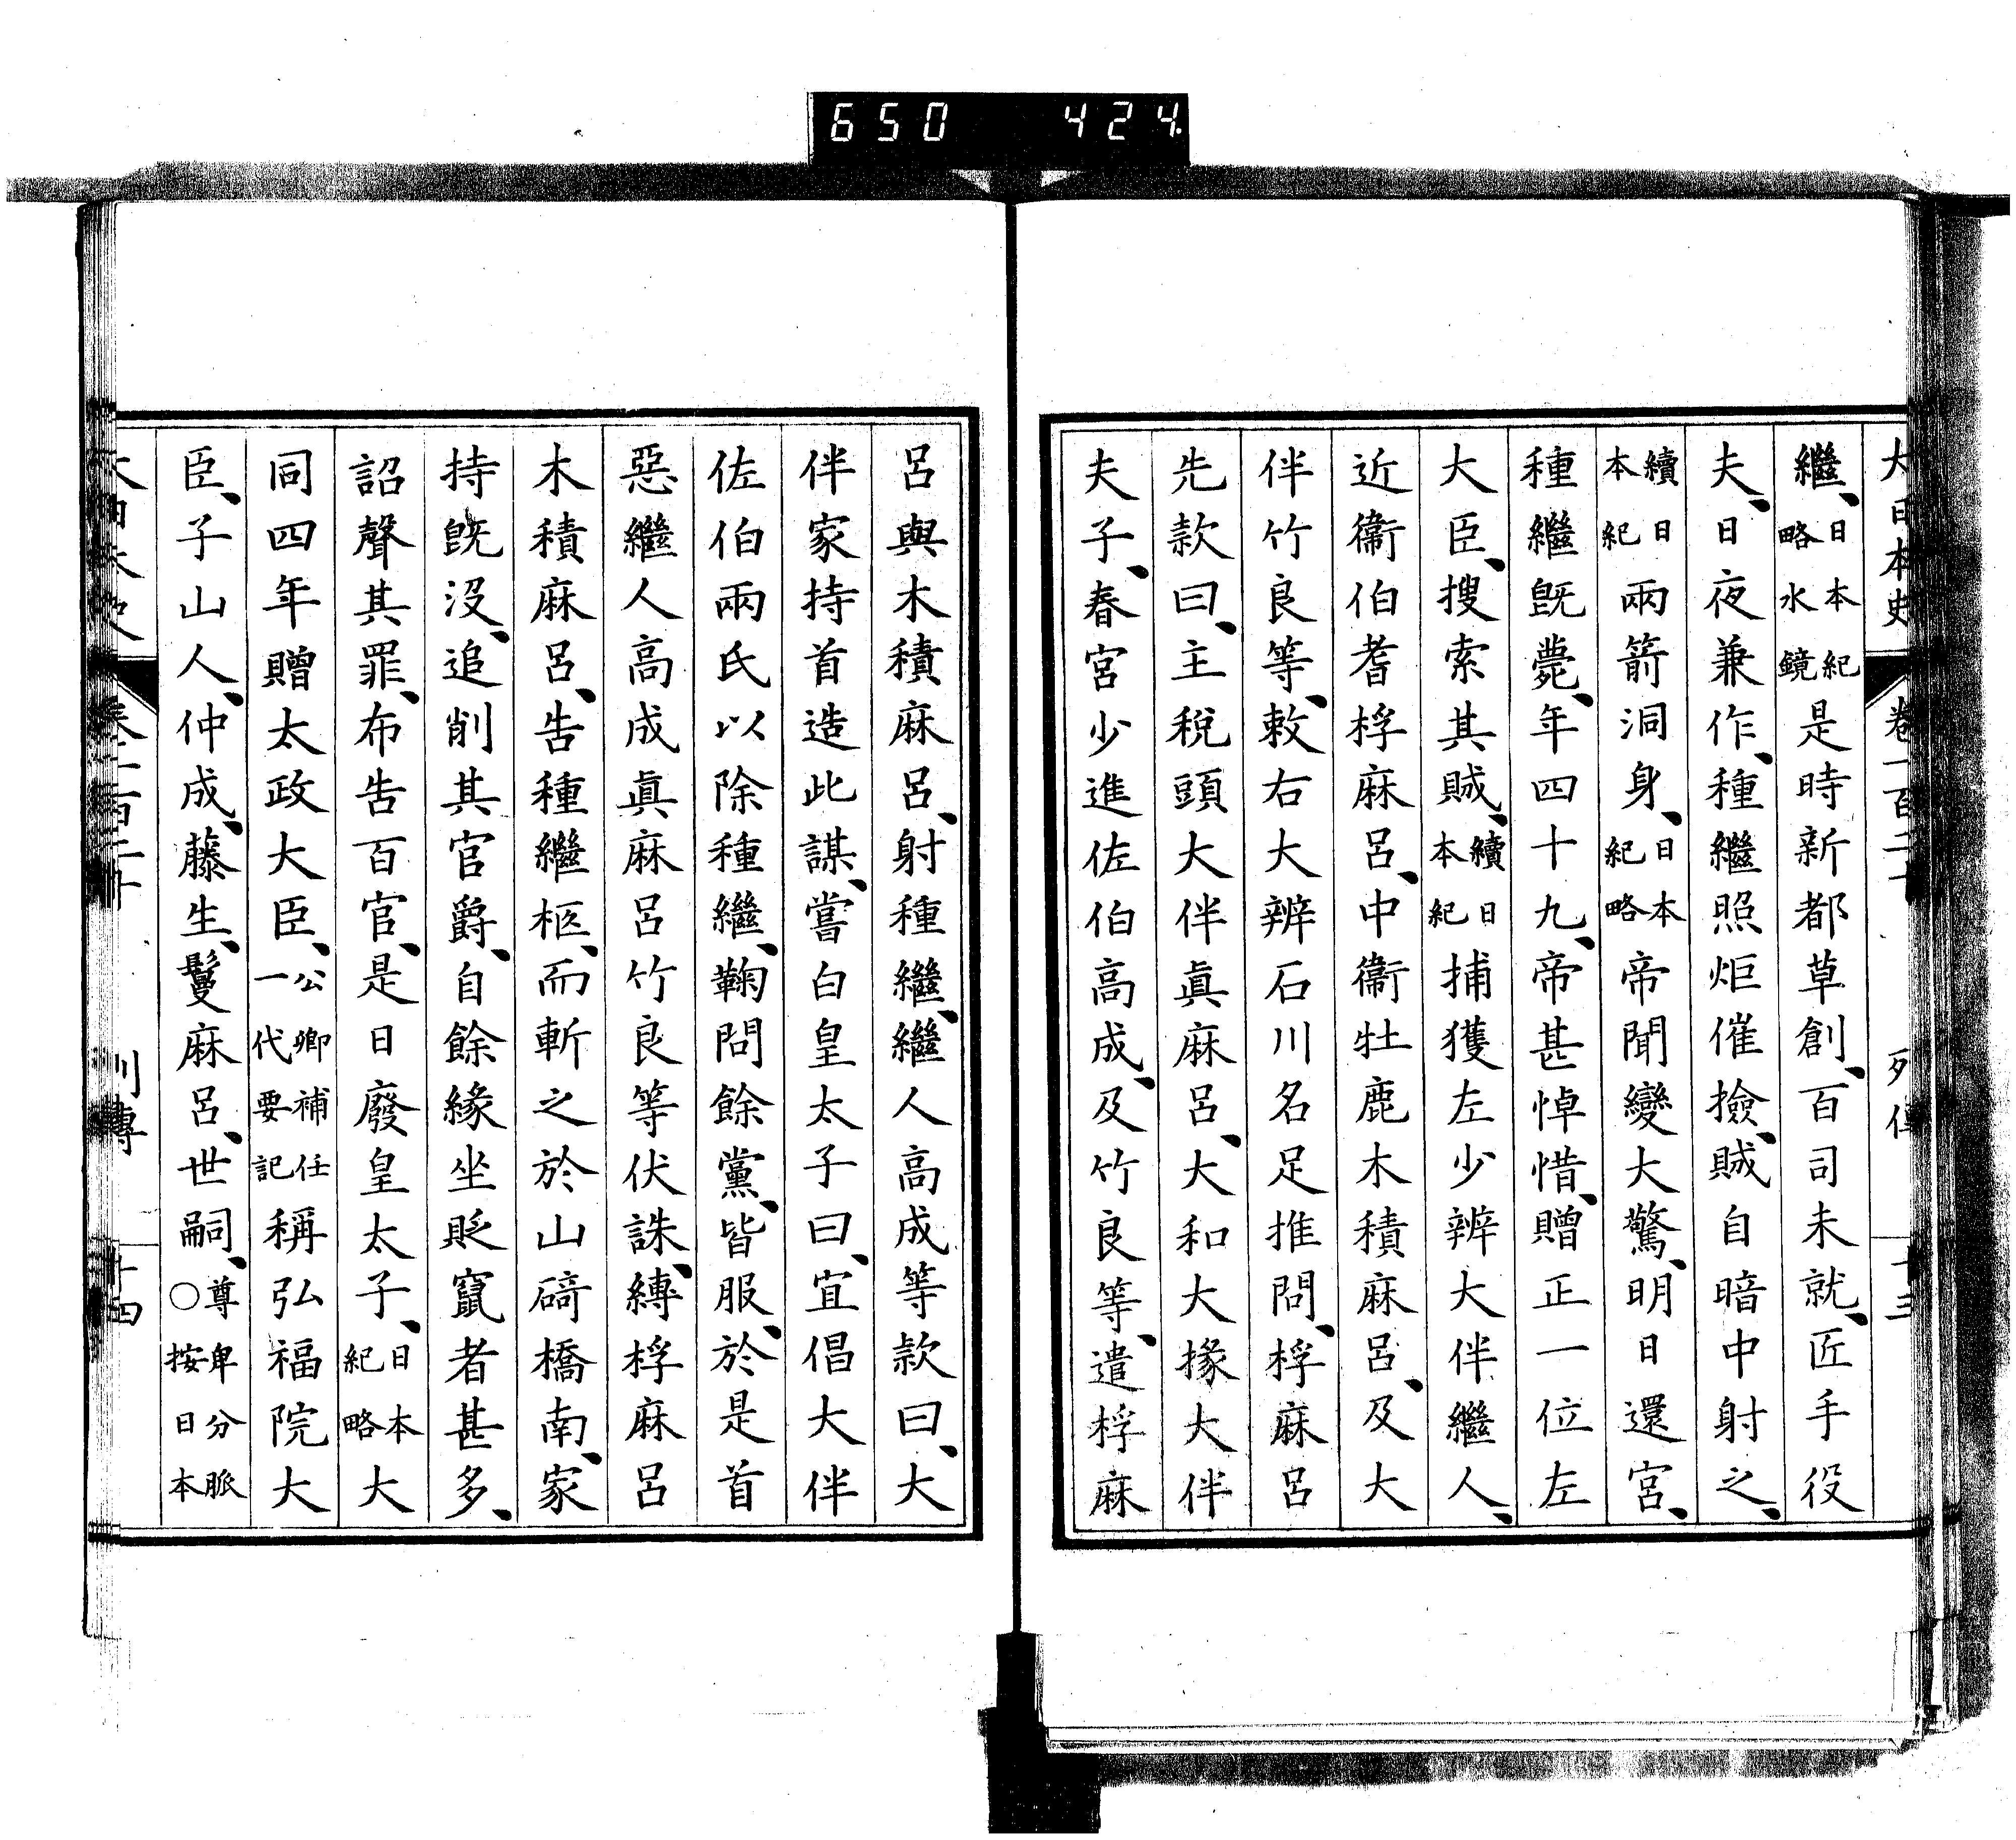 650 424
大日本史 卷一百二十 列傳 十三
繼、日本紀略水鏡是時新都草創、百司未就、匠手役
夫、日夜兼作、種繼照炬催撿、賊自暗中射之、
續日本紀兩箭洞身、日本紀略帝聞變大驚、明日還宮、
種繼既薨、年四十九、帝甚悼惜、贈正一位左
大臣、搜索其賊、續日本紀捕獲左少辨大伴繼人、
近衞伯耆桴麻呂、中衞牡鹿木積麻呂、及大
伴竹良等、敕右大辨石川名足推問、桴麻呂
先款曰、主稅頭大伴眞麻呂、大和大掾大伴
夫子、春宮少進佐伯高成、及竹良等、遣桴麻
呂與木積麻呂、射種繼、繼人高成等款曰、大
伴家持首造此謀、嘗白皇太子曰、宜倡大伴
佐伯兩氏以除種繼、鞠問餘黨、皆服、於是首
惡繼人高成眞麻呂竹良等伏誅、縛桴麻呂
木積麻呂、告種繼柩、而斬之於山碕橋南、家
持既沒、追削其官爵、自餘緣坐貶竄者甚多、
詔聲其罪、布告百官、是日廢皇太子、日本紀略大
同四年贈太政大臣、公卿補任一代要記稱弘福院大
臣、子山人、仲成、藤生、鬘麻呂、世嗣、尊卑分脈○按日本
大日本史 卷一百二十 列傳 十四